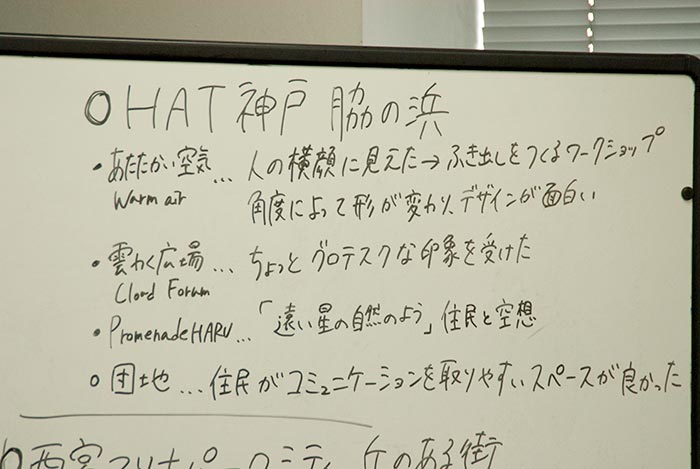 ○HAT神戸 脇の浜
・あたたかい空気 … 人の横顔に見えた→ふき出しをつくるワークショップ
Warm air 角度によって形が変わり、デザインが面白い
・雲わく広場 … ちょっとグロテスクな印象を受けた
Cloud Forum
・PromenadeHARU…「遠い星の自然のよう」住民と空想
○団地 … 住民がコミュニケーションを取りやすいスペースが良かった
○西宮マリナパークシティ 丘のある街